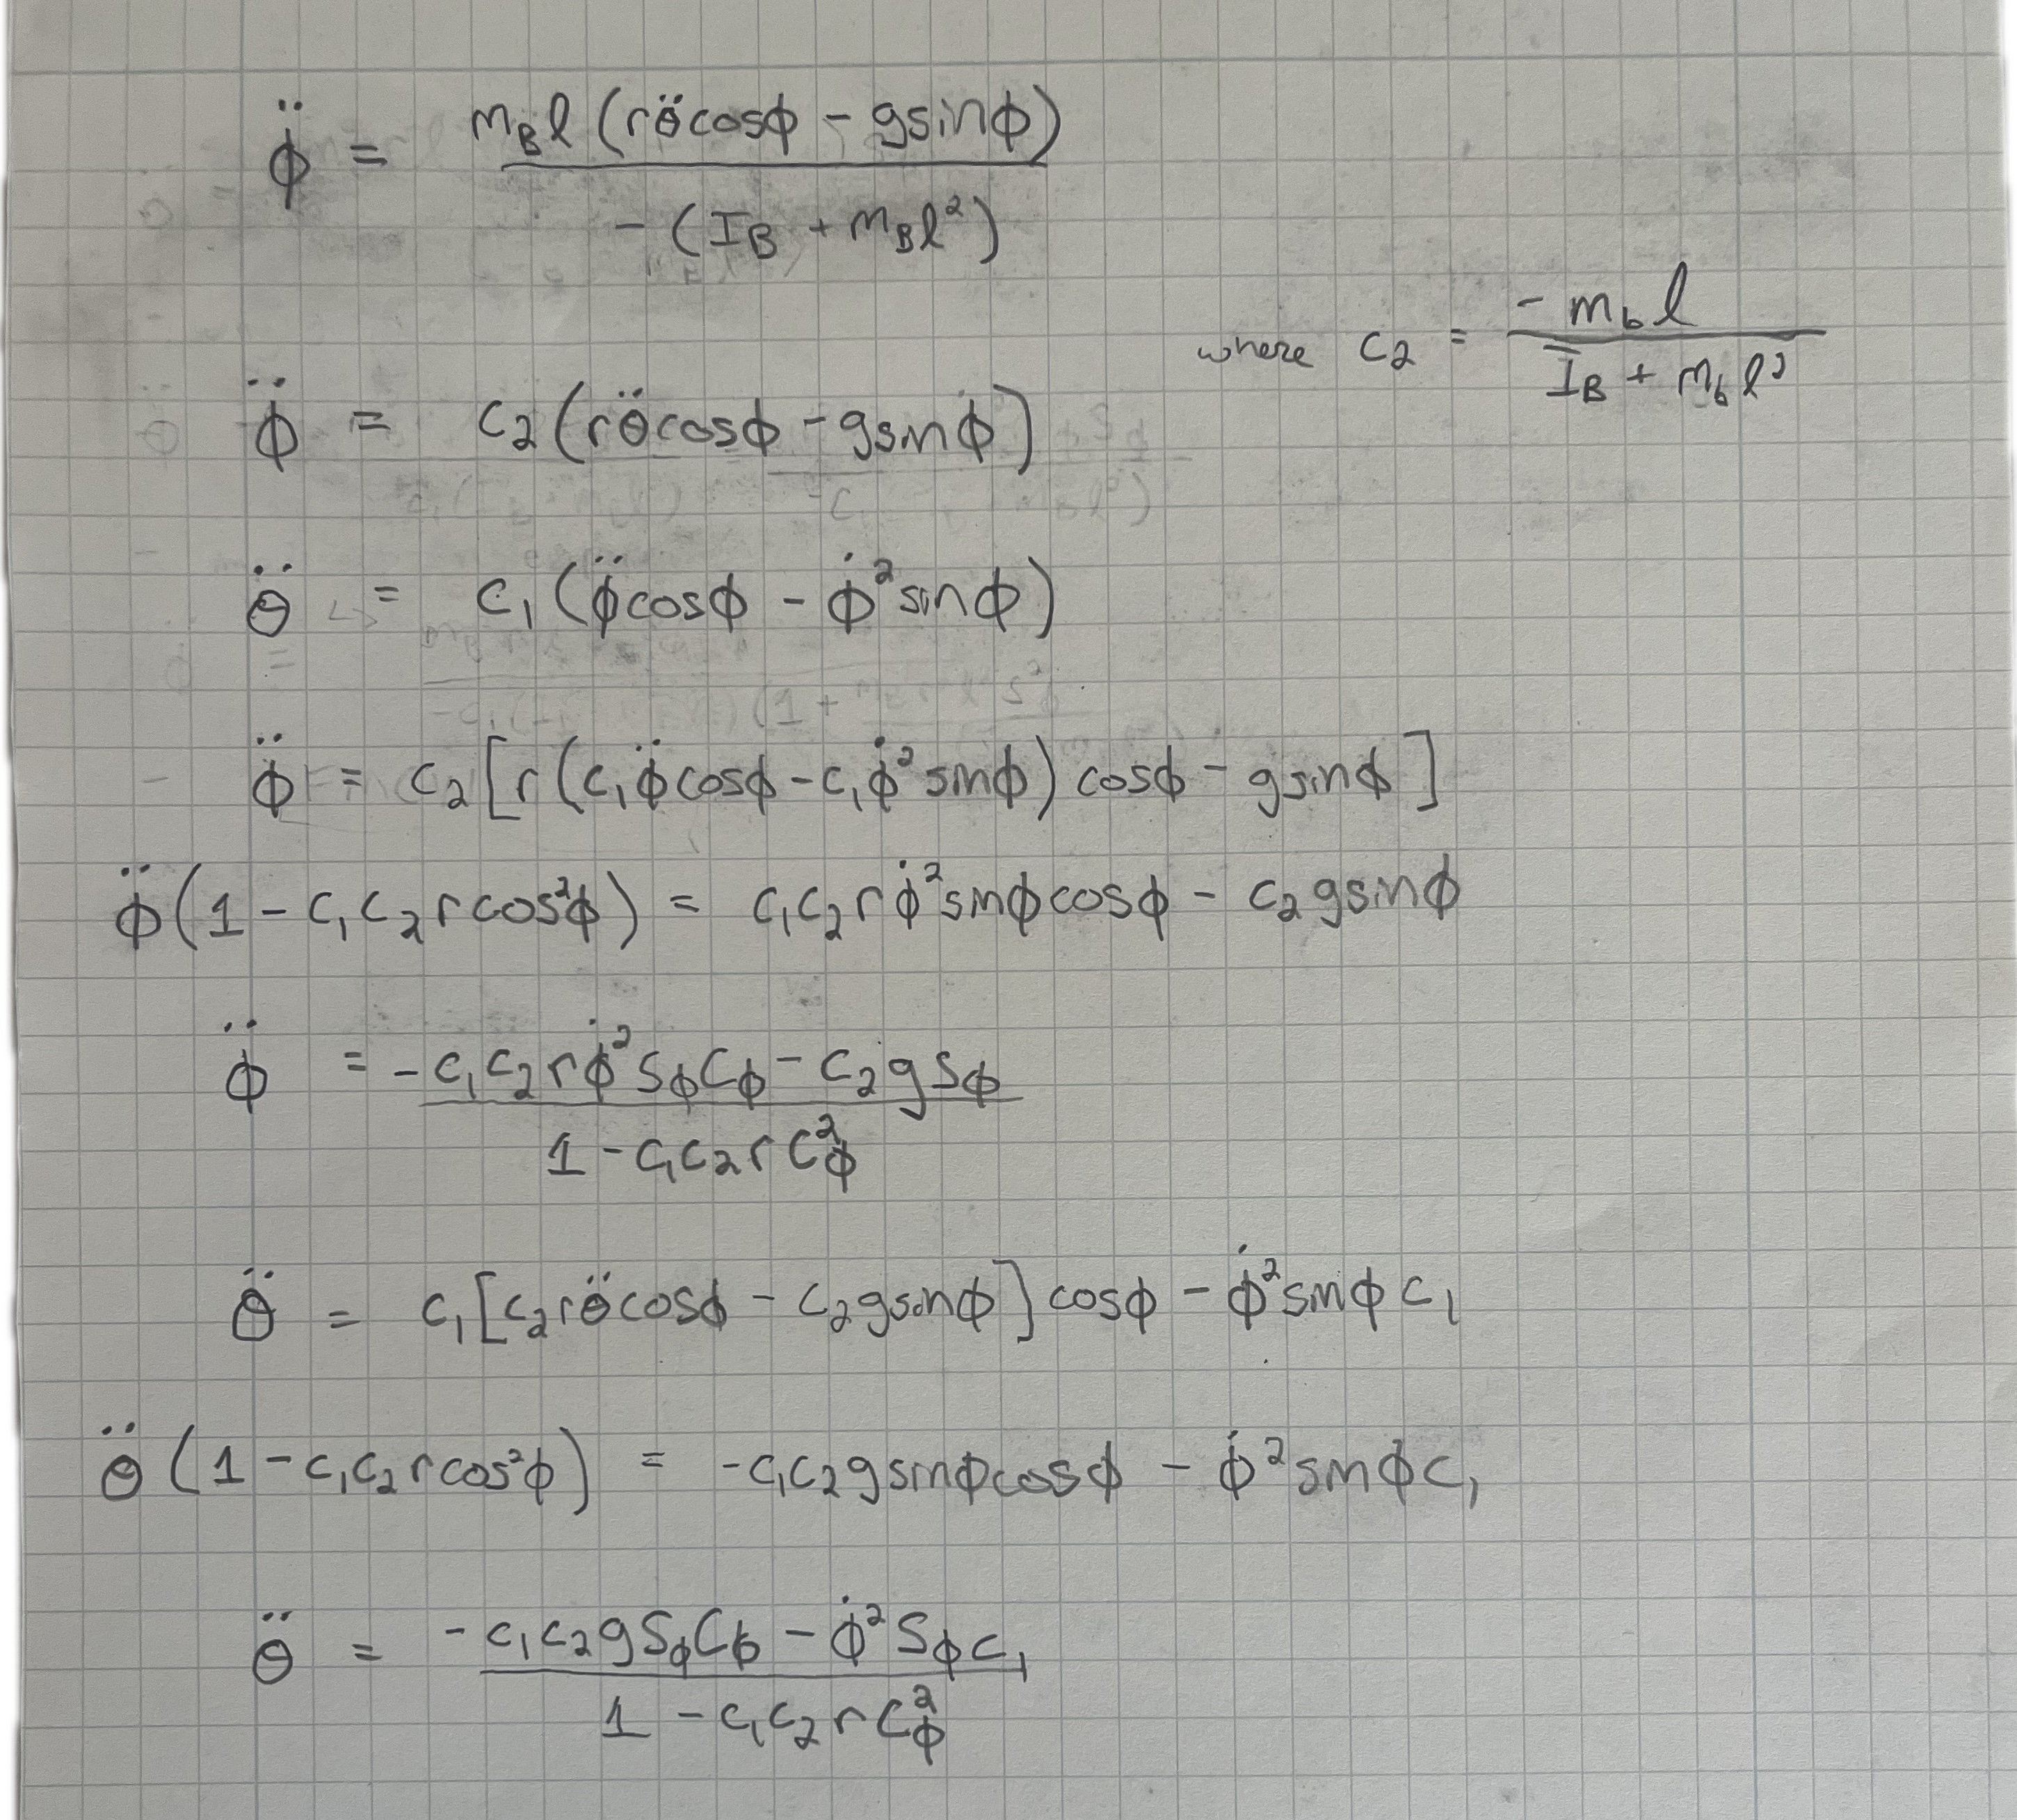 φ̈ = m_B l (rθ̈cosφ − gsinφ) / −(I_B + m_B l²)
where c₂ = −m_b l / (I_B + m_b l²)
φ̈ = c₂(rθ̈cosφ − gsinφ)
θ̈ = c₁(φ̈cosφ − φ̇²sinφ)
φ̈ = c₂[r(c₁φ̈cosφ − c₁φ̇²sinφ) cosφ − gsinφ]
φ̈(1 − c₁c₂rcos²φ) = c₁c₂rφ̇²sinφcosφ − c₂gsinφ
φ̈ = −c₁c₂rφ̇²S_φC_φ − c₂gS_φ / 1 − c₁c₂rC²_φ
θ̈ = c₁[c₂rθ̈cosφ − c₂gsinφ]cosφ − φ̇²sinφc₁
θ̈(1 − c₁c₂rcos²φ) = −c₁c₂gsinφcosφ − φ̇²sinφc₁
θ̈ = −c₁c₂gS_φC_φ − φ̇²S_φc₁ / 1 − c₁c₂rC²_φ